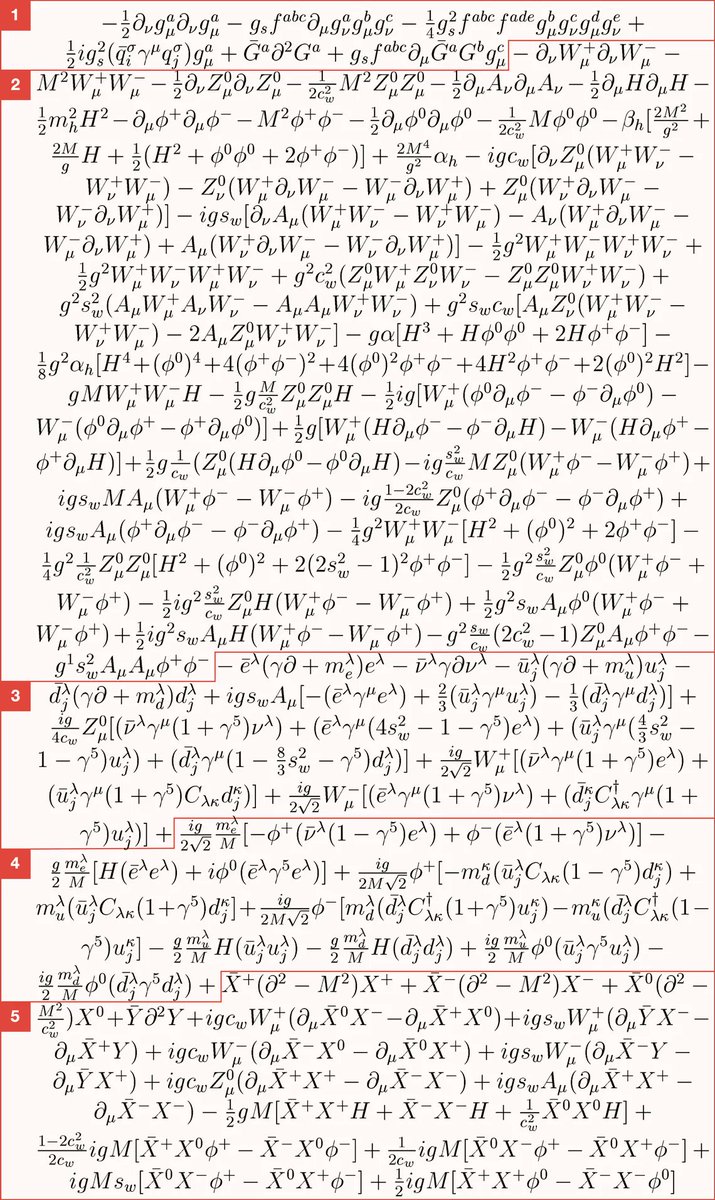 1 $-\frac{1}{2}\partial_\nu g^a_\mu \partial_\nu g^a_\mu - g_s f^{abc}\partial_\mu g^a_\nu g^b_\mu g^c_\nu - \frac{1}{4}g_s^2 f^{abc}f^{ade} g^b_\mu g^c_\nu g^d_\mu g^e_\nu +$
$\frac{1}{2}ig_s^2(\bar{q}^\sigma_i\gamma^\mu q^\sigma_j)g^a_\mu + \bar{G}^a\partial^2 G^a + g_s f^{abc}\partial_\mu \bar{G}^a G^b g^c_\mu - \partial_\nu W^+_\mu \partial_\nu W^-_\mu -$
2 $M^2 W^+_\mu W^-_\mu - \frac{1}{2}\partial_\nu Z^0_\mu \partial_\nu Z^0_\mu - \frac{1}{2c_w^2}M^2 Z^0_\mu Z^0_\mu - \frac{1}{2}\partial_\mu A_\nu \partial_\mu A_\nu - \frac{1}{2}\partial_\mu H \partial_\mu H -$
$\frac{1}{2}m_h^2 H^2 - \partial_\mu \phi^+ \partial_\mu \phi^- - M^2 \phi^+\phi^- - \frac{1}{2}\partial_\mu \phi^0 \partial_\mu \phi^0 - \frac{1}{2c_w^2}M\phi^0\phi^0 - \beta_h[\frac{2M^2}{g^2} +$
$\frac{2M}{g}H + \frac{1}{2}(H^2 + \phi^0\phi^0 + 2\phi^+\phi^-)] + \frac{2M^4}{g^2}\alpha_h - igc_w[\partial_\nu Z^0_\mu(W^+_\mu W^-_\nu -$
$W^+_\nu W^-_\mu) - Z^0_\nu(W^+_\mu \partial_\nu W^-_\mu - W^-_\mu \partial_\nu W^+_\mu) + Z^0_\mu(W^+_\nu \partial_\nu W^-_\mu -$
$W^-_\nu \partial_\nu W^+_\mu)] - igs_w[\partial_\nu A_\mu(W^+_\mu W^-_\nu - W^+_\nu W^-_\mu) - A_\nu(W^+_\mu \partial_\nu W^-_\mu -$
$W^-_\mu \partial_\nu W^+_\mu) + A_\mu(W^+_\nu \partial_\nu W^-_\mu - W^-_\nu \partial_\nu W^+_\mu)] - \frac{1}{2}g^2 W^+_\mu W^-_\mu W^+_\nu W^-_\nu +$
$\frac{1}{2}g^2 W^+_\mu W^-_\nu W^+_\mu W^-_\nu + g^2c_w^2(Z^0_\mu W^+_\mu Z^0_\nu W^-_\nu - Z^0_\mu Z^0_\mu W^+_\nu W^-_\nu) +$
$g^2s_w^2(A_\mu W^+_\mu A_\nu W^-_\nu - A_\mu A_\mu W^+_\nu W^-_\nu) + g^2 s_w c_w[A_\mu Z^0_\nu(W^+_\mu W^-_\nu -$
$W^+_\nu W^-_\mu) - 2A_\mu Z^0_\mu W^+_\nu W^-_\nu] - g\alpha[H^3 + H\phi^0\phi^0 + 2H\phi^+\phi^-] -$
$\frac{1}{8}g^2\alpha_h[H^4 + (\phi^0)^4 + 4(\phi^+\phi^-)^2 + 4(\phi^0)^2\phi^+\phi^- + 4H^2\phi^+\phi^- + 2(\phi^0)^2H^2] -$
$gMW^+_\mu W^-_\mu H - \frac{1}{2}g\frac{M}{c_w^2}Z^0_\mu Z^0_\mu H - \frac{1}{2}ig[W^+_\mu(\phi^0\partial_\mu\phi^- - \phi^-\partial_\mu\phi^0) -$
$W^-_\mu(\phi^0\partial_\mu\phi^+ - \phi^+\partial_\mu\phi^0)] + \frac{1}{2}g[W^+_\mu(H\partial_\mu\phi^- - \phi^-\partial_\mu H) - W^-_\mu(H\partial_\mu\phi^+ -$
$\phi^+\partial_\mu H)] + \frac{1}{2}g\frac{1}{c_w}(Z^0_\mu(H\partial_\mu\phi^0 - \phi^0\partial_\mu H) - ig\frac{s_w^2}{c_w}MZ^0_\mu(W^+_\mu\phi^- - W^-_\mu\phi^+) +$
$igs_wMA_\mu(W^+_\mu\phi^- - W^-_\mu\phi^+) - ig\frac{1-2c_w^2}{2c_w}Z^0_\mu(\phi^+\partial_\mu\phi^- - \phi^-\partial_\mu\phi^+) +$
$igs_wA_\mu(\phi^+\partial_\mu\phi^- - \phi^-\partial_\mu\phi^+) - \frac{1}{4}g^2W^+_\mu W^-_\mu[H^2 + (\phi^0)^2 + 2\phi^+\phi^-] -$
$\frac{1}{4}g^2\frac{1}{c_w^2}Z^0_\mu Z^0_\mu[H^2 + (\phi^0)^2 + 2(2s_w^2 - 1)^2\phi^+\phi^-] - \frac{1}{2}g^2\frac{s_w^2}{c_w}Z^0_\mu\phi^0(W^+_\mu\phi^- +$
$W^-_\mu\phi^+) - \frac{1}{2}ig^2\frac{s_w^2}{c_w}Z^0_\mu H(W^+_\mu\phi^- - W^-_\mu\phi^+) + \frac{1}{2}g^2s_wA_\mu\phi^0(W^+_\mu\phi^- +$
$W^-_\mu\phi^+) + \frac{1}{2}ig^2s_wA_\mu H(W^+_\mu\phi^- - W^-_\mu\phi^+) - g^2\frac{s_w}{c_w}(2c_w^2 - 1)Z^0_\mu A_\mu\phi^+\phi^- -$
$g^1s_w^2A_\mu A_\mu\phi^+\phi^- - \bar{e}^\lambda(\gamma\partial + m_e^\lambda)e^\lambda - \bar{\nu}^\lambda\gamma\partial\nu^\lambda - \bar{u}^\lambda_j(\gamma\partial + m_u^\lambda)u^\lambda_j -$
3 $\bar{d}^\lambda_j(\gamma\partial + m_d^\lambda)d^\lambda_j + igs_wA_\mu[-(\bar{e}^\lambda\gamma^\mu e^\lambda) + \frac{2}{3}(\bar{u}^\lambda_j\gamma^\mu u^\lambda_j) - \frac{1}{3}(\bar{d}^\lambda_j\gamma^\mu d^\lambda_j)] +$
$\frac{ig}{4c_w}Z^0_\mu[(\bar{\nu}^\lambda\gamma^\mu(1 + \gamma^5)\nu^\lambda) + (\bar{e}^\lambda\gamma^\mu(4s_w^2 - 1 - \gamma^5)e^\lambda) + (\bar{u}^\lambda_j\gamma^\mu(\frac{4}{3}s_w^2 -$
$1 - \gamma^5)u^\lambda_j) + (\bar{d}^\lambda_j\gamma^\mu(1 - \frac{8}{3}s_w^2 - \gamma^5)d^\lambda_j)] + \frac{ig}{2\sqrt{2}}W^+_\mu[(\bar{\nu}^\lambda\gamma^\mu(1 + \gamma^5)e^\lambda) +$
$(\bar{u}^\lambda_j\gamma^\mu(1 + \gamma^5)C_{\lambda\kappa}d^\kappa_j)] + \frac{ig}{2\sqrt{2}}W^-_\mu[(\bar{e}^\lambda\gamma^\mu(1 + \gamma^5)\nu^\lambda) + (\bar{d}^\kappa_jC^\dagger_{\lambda\kappa}\gamma^\mu(1 +$
$\gamma^5)u^\lambda_j)] + \frac{ig}{2\sqrt{2}}\frac{m_e^\lambda}{M}[-\phi^+(\bar{\nu}^\lambda(1 - \gamma^5)e^\lambda) + \phi^-(\bar{e}^\lambda(1 + \gamma^5)\nu^\lambda)] -$
4 $\frac{g}{2}\frac{m_e^\lambda}{M}[H(\bar{e}^\lambda e^\lambda) + i\phi^0(\bar{e}^\lambda\gamma^5e^\lambda)] + \frac{ig}{2M\sqrt{2}}\phi^+[-m_d^\kappa(\bar{u}^\lambda_jC_{\lambda\kappa}(1 - \gamma^5)d^\kappa_j) +$
$m_u^\lambda(\bar{u}^\lambda_jC_{\lambda\kappa}(1 + \gamma^5)d^\kappa_j] + \frac{ig}{2M\sqrt{2}}\phi^-[m_d^\lambda(\bar{d}^\lambda_jC^\dagger_{\lambda\kappa}(1 + \gamma^5)u^\kappa_j) - m_u^\kappa(\bar{d}^\lambda_jC^\dagger_{\lambda\kappa}(1 -$
$\gamma^5)u^\kappa_j] - \frac{g}{2}\frac{m_u^\lambda}{M}H(\bar{u}^\lambda_ju^\lambda_j) - \frac{g}{2}\frac{m_d^\lambda}{M}H(\bar{d}^\lambda_jd^\lambda_j) + \frac{ig}{2}\frac{m_u^\lambda}{M}\phi^0(\bar{u}^\lambda_j\gamma^5u^\lambda_j) -$
$\frac{ig}{2}\frac{m_d^\lambda}{M}\phi^0(\bar{d}^\lambda_j\gamma^5d^\lambda_j) + \bar{X}^+(\partial^2 - M^2)X^+ + \bar{X}^-(\partial^2 - M^2)X^- + \bar{X}^0(\partial^2 -$
5 $\frac{M^2}{c_w^2})X^0 + \bar{Y}\partial^2Y + igc_wW^+_\mu(\partial_\mu\bar{X}^0X^- - \partial_\mu\bar{X}^+X^0) + igs_wW^+_\mu(\partial_\mu\bar{Y}X^- -$
$\partial_\mu\bar{X}^+Y) + igc_wW^-_\mu(\partial_\mu\bar{X}^-X^0 - \partial_\mu\bar{X}^0X^+) + igs_wW^-_\mu(\partial_\mu\bar{X}^-Y -$
$\partial_\mu\bar{Y}X^+) + igc_wZ^0_\mu(\partial_\mu\bar{X}^+X^+ - \partial_\mu\bar{X}^-X^-) + igs_wA_\mu(\partial_\mu\bar{X}^+X^+ -$
$\partial_\mu\bar{X}^-X^-) - \frac{1}{2}gM[\bar{X}^+X^+H + \bar{X}^-X^-H + \frac{1}{c_w^2}\bar{X}^0X^0H] +$
$\frac{1-2c_w^2}{2c_w}igM[\bar{X}^+X^0\phi^+ - \bar{X}^-X^0\phi^-] + \frac{1}{2c_w}igM[\bar{X}^0X^-\phi^+ - \bar{X}^0X^+\phi^-] +$
$igMs_w[\bar{X}^0X^-\phi^+ - \bar{X}^0X^+\phi^-] + \frac{1}{2}igM[\bar{X}^+X^+\phi^0 - \bar{X}^-X^-\phi^0]$